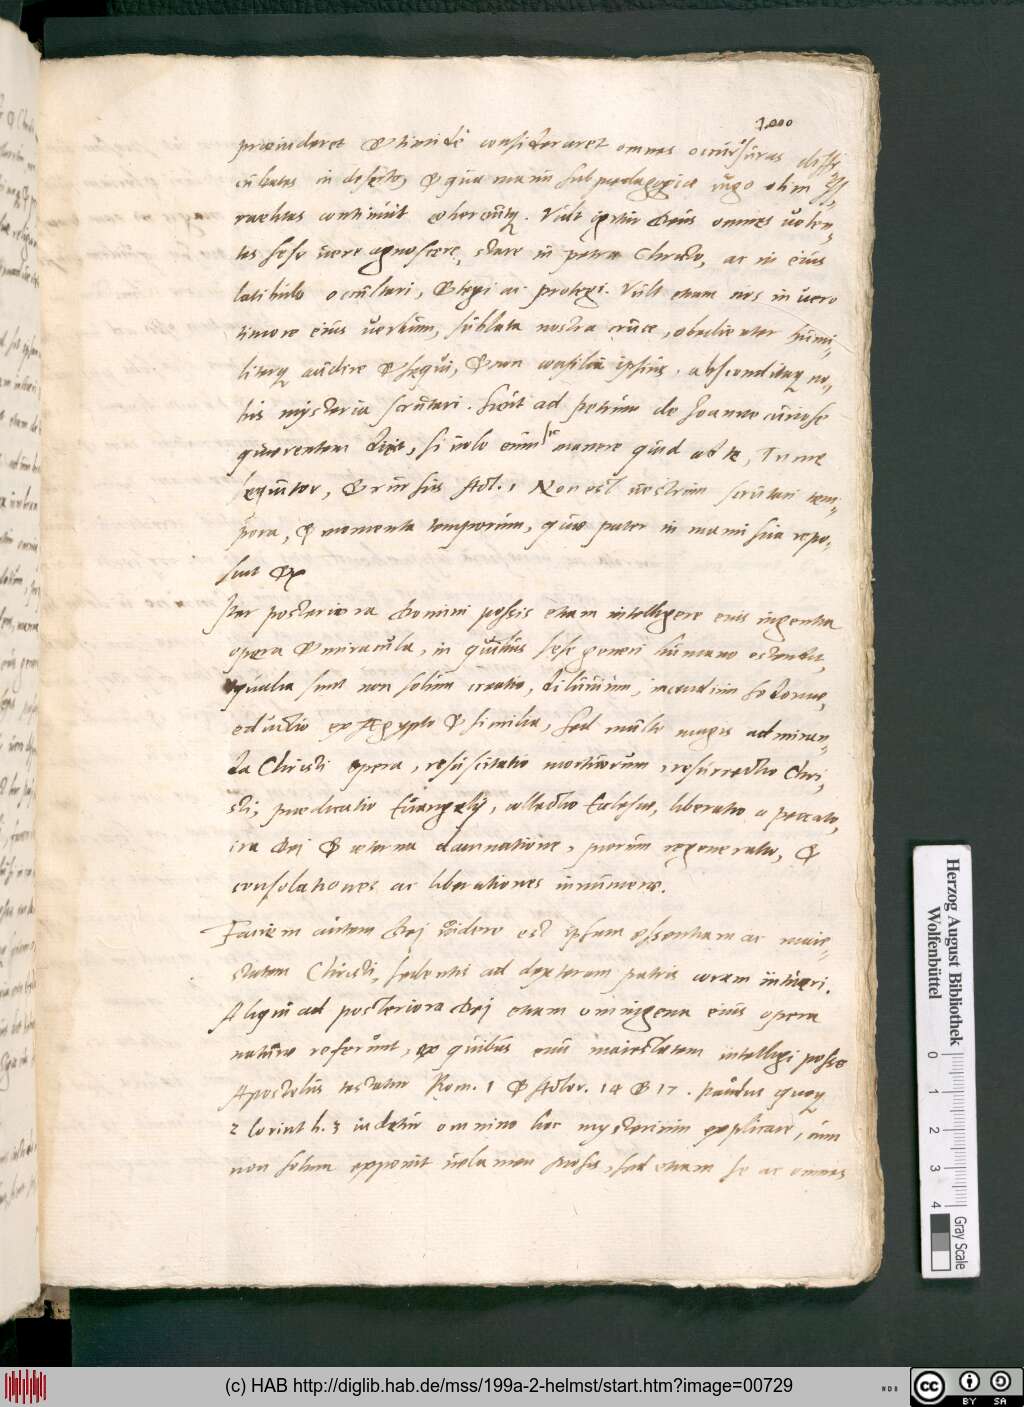 1000
praevideret et timide consideraret omnes occursuras diffi,
cultates in deserto, et qua manu sub paedagogiae iugo olim Is,
raelitas continuit coercuitq. Vult igitur Deus omnes volen,,
tes sese vere agnoscere, stare in petra Christo, ac in eius
latibulo occultari, et tegi ac protegi. Vult etiam nos in vero
timore eius verbum, sublata nostra cruce, obedienter humi,,
literq audire et sequi, et non consilia ipsius, absconditaq no,,
bis mysteria scrutari. Sicut ad Petrum de Joanne curiose
quaerentem dixit, si volo eum sic manere quid ad te, Tu me
sequitor, et rursus Act. 1 Non est vestrum scrutari tem,,
pora, et momenta temporum, quae pater in manu sua repo,,
suit etc
Per posteriora Domini possis etiam intelligere eius ingentia
opera et miracula, in quibus sese generi humano ostendit,
qualia sunt non solum creatio, diluvium, incendium Sodomae,
eductio ex Aegypto et similia, sed multo magis admiran,,
da Christi opera, resuscitatio mortuorum, resurrectio Chri,
sti, praedicatio Evangelij, collectio Ecclesiae, liberatio a peccato,
ira Dej et aeterna damnatione, piorum regeneratio, et
consolationes ac liberationes innumerae.
Faciem autem Dej videre est ipsam essentiam ac maie,,
statem Christi, sedentis ad dexteram patris coram intueri.
Aliqui ad posteriora Dej etiam omnigena eius opera
naturae referunt, ex quibus eius maiestatem intelligi posse
Apostolus testatur Rom. 1 et Actor. 14 et 17. Paulus quoq
2 Corinth. 3 videtur omnino hoc mysterium explicare, cum
non solum exponit velamen Mosis, sed etiam se ac omnes
Herzog August Bibliothek
Wolfenbüttel
0 1 2 3 4
Gray Scale
(c) HAB http://diglib.hab.de/mss/199a-2-helmst/start.htm?image=00729
cc BY SA